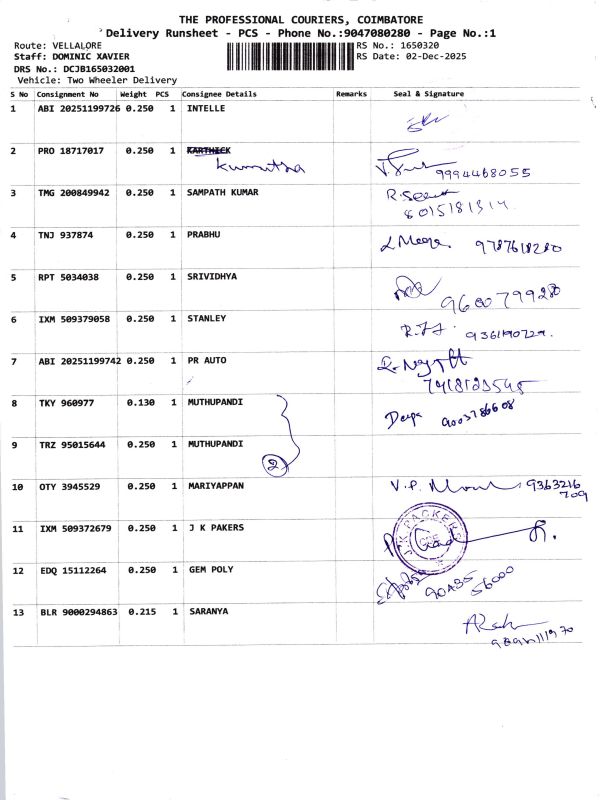 THE PROFESSIONAL COURIERS, COIMBATORE
Delivery Runsheet - PCS - Phone No.:9047080280 - Page No.:1
Route: VELLALORE RS No.: 1650320
Staff: DOMINIC XAVIER RS Date: 02-Dec-2025
DRS No.: DCJB165032001
Vehicle: Two Wheeler Delivery
S No Consignment No Weight PCS Consignee Details Remarks Seal & Signature
1 ABI 20251199726 0.250 1 INTELLE
2 PRO 18717017 0.250 1 KARTHICK
Kumutha 9994468055
3 TMG 200849942 0.250 1 SAMPATH KUMAR
8015181314
4 TNJ 937874 0.250 1 PRABHU 9787618280
5 RPT 5034038 0.250 1 SRIVIDHYA
9600799280
6 IXM 509379058 0.250 1 STANLEY
7 ABI 20251199742 0.250 1 PR AUTO
8 TKY 960977 0.130 1 MUTHUPANDI
Deepa 9003786608
9 TRZ 95015644 0.250 1 MUTHUPANDI
2
10 OTY 3945529 0.250 1 MARIYAPPAN V.P. 9363216
709
11 IXM 509372679 0.250 1 J K PAKERS
J.K PACKERS
CBE
12 EDQ 15112264 0.250 1 GEM POLY
56000
13 BLR 9000294863 0.215 1 SARANYA